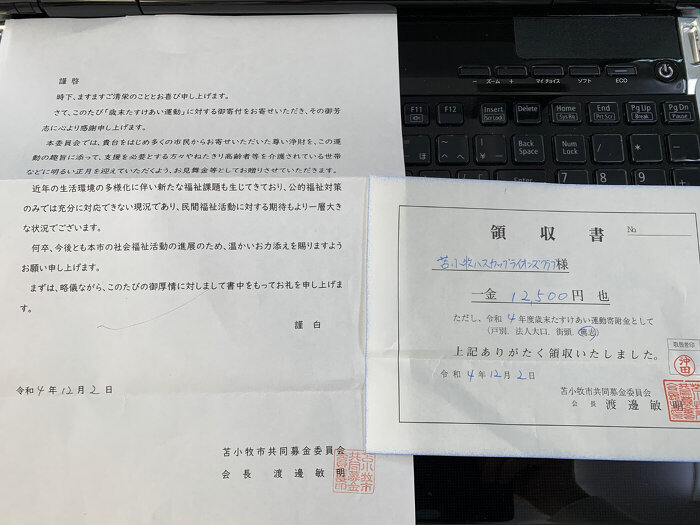 謹啓
時下、ますますご清栄のこととお喜び申し上げます。
さて、このたび「歳末たすけあい運動」に対する御寄付をお寄せいただき、その御芳
志に心より感謝申し上げます。
本委員会では、貴台をはじめ多くの市民からお寄せいただいた尊い浄財を、この運
動の趣旨に添って、支援を必要とする方々やねたきり高齢者等を介護されている世帯
などに明るい正月を迎えていただくよう、お見舞金等としてお贈りさせていただきます。
近年の生活環境の多様化に伴い新たな福祉課題も生じてきており、公的福祉対策
のみでは充分に対応できない現況であり、民間福祉活動に対する期待もより一層大き
な状況でございます。
何卒、今後とも本市の社会福祉活動の進展のため、温かいお力添えを賜りますよう
お願い申し上げます。
まずは、略儀ながら、このたびの御厚情に対しまして書中をもってお礼を申し上げま
す。
謹白
令和4年12月2日
苫小牧市共同募金委員会
会長 渡邊敏明
苫小牧市共同募金委員会印
領収書
No
苫小牧ハスカップライオンズクラブ様
一金 12,500円也
ただし、令和4年度歳末たすけあい運動寄附金として
(戸別、法人大口、街頭、無志)
上記ありがたく領収いたしました。
令和4年12月2日
苫小牧市共同募金委員会
会長 渡邊敏明
取扱者印
沖田
− ズーム +
マイ チョイス
ソフト
ECO
F11
F12
Insert
Scr Lock
Delete
Home
Sys Rq
End
Prt Sc
Pg Up
Break
Pg Dn
Pause
Back
Space
Num
Lock